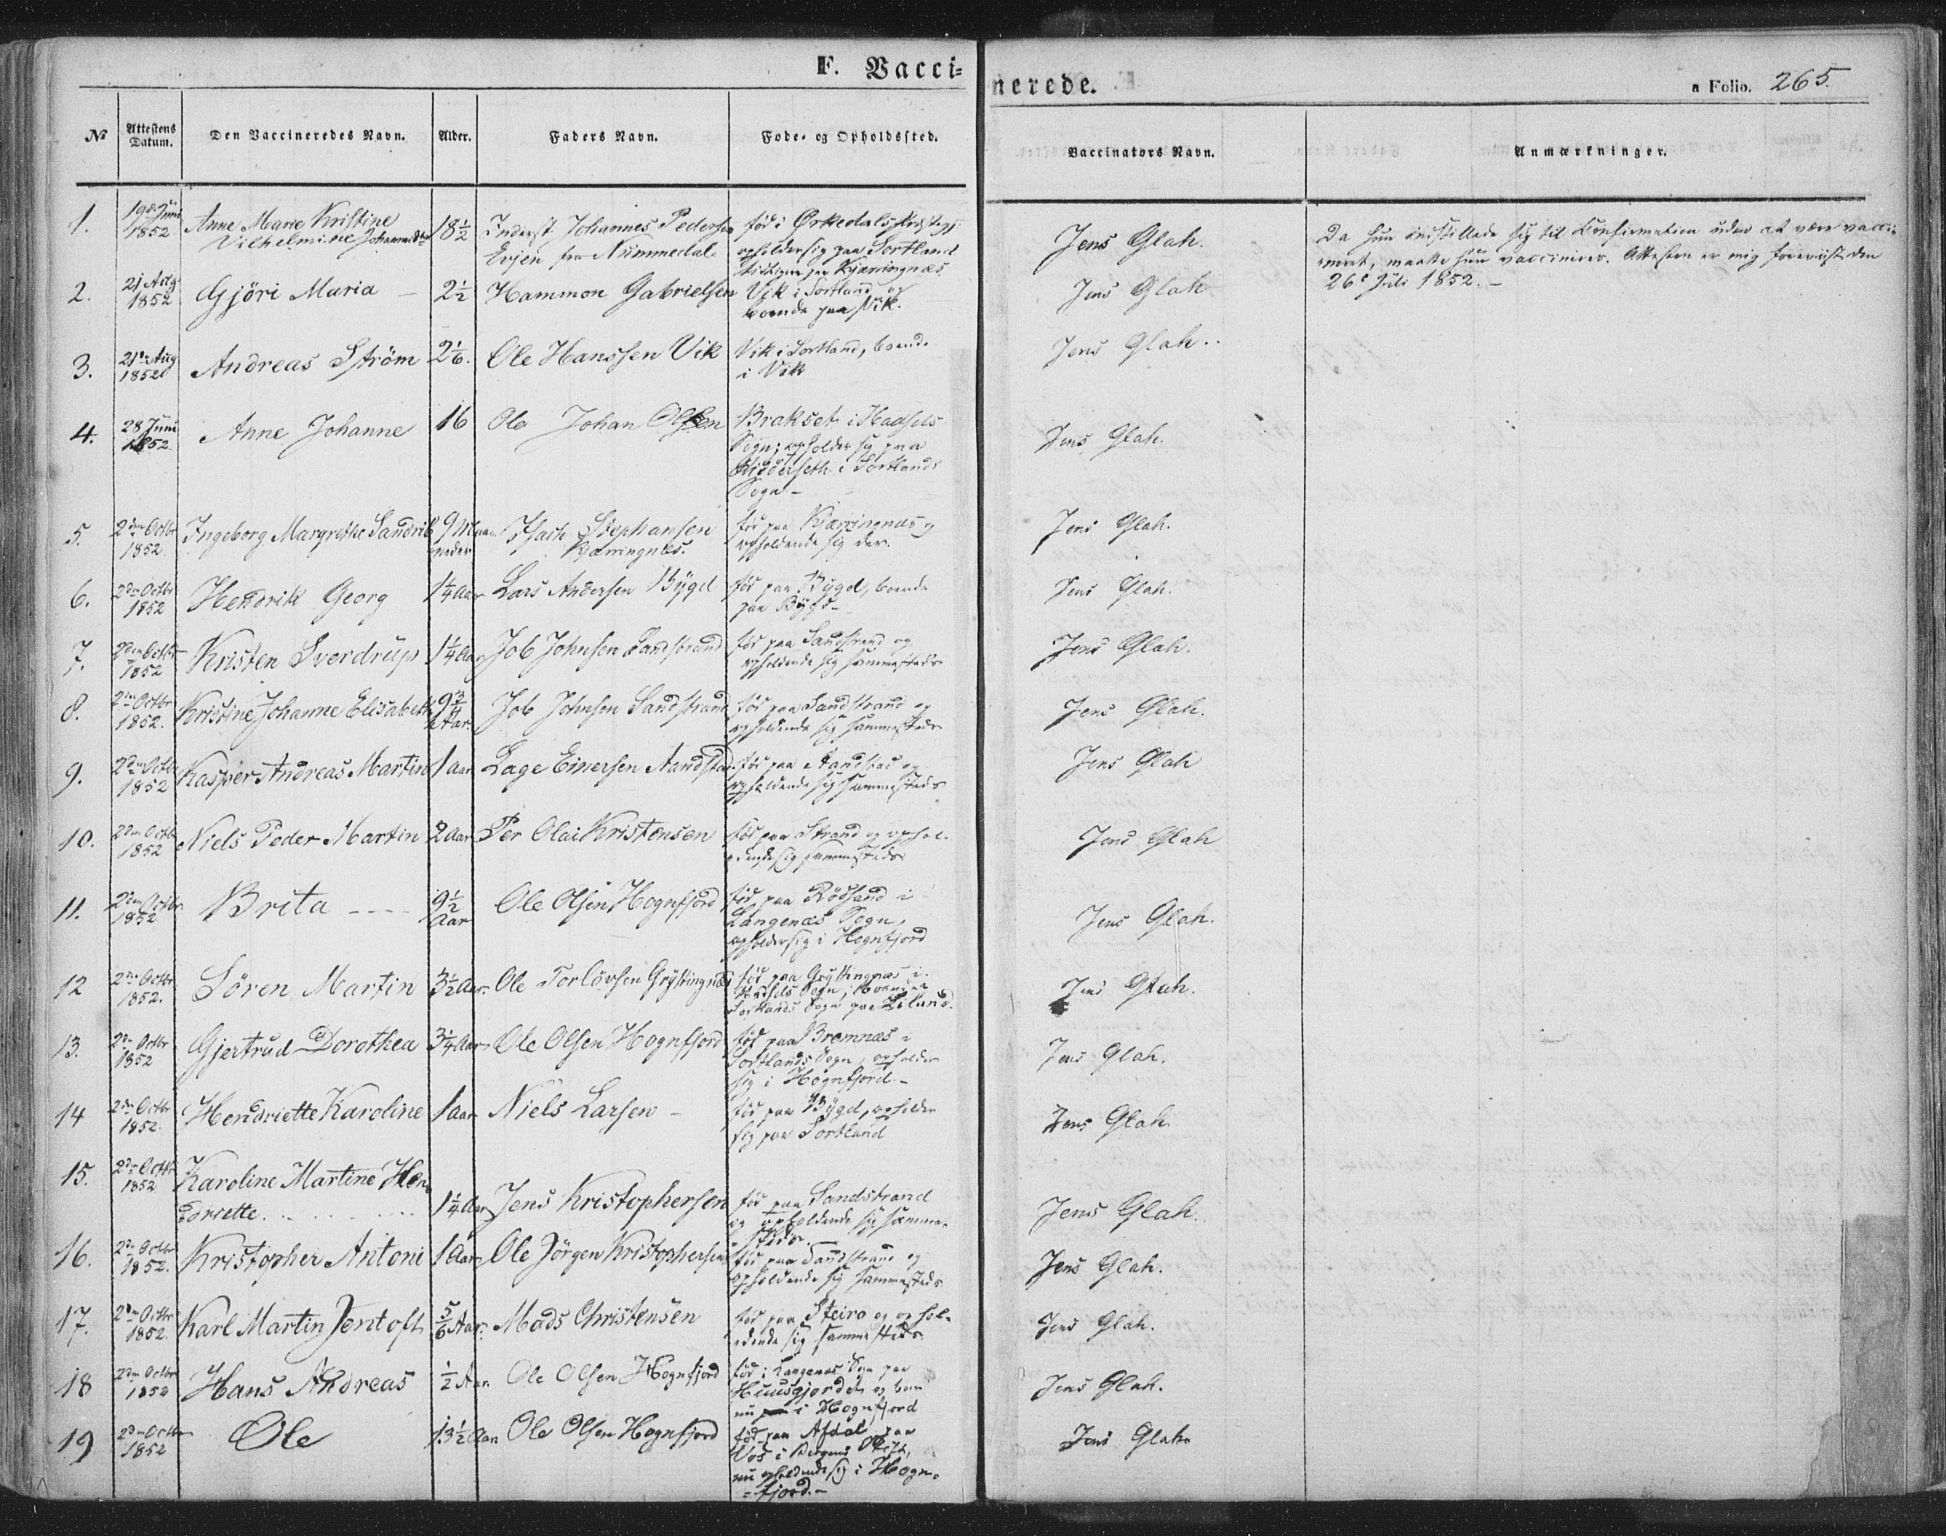 F. Vacci=
nerede.
a Folio. 265.
№ Attestens Datum. Den Vaccineredes Navn. Alder. Faders Navn. Føde- og Opholdssted. Vaccinators Navn. Anmærkninger.
1. 19de Juni 1852 Anne Marie Kristine Vilhelmine Johannesdtr 18½ Inderst Johannes Pedersen Evjen fra Nummedal fød i Ørkedals Præstegj opholder sig paa Sortland Jens Glah. Da hun indstillede sig til Confirmation uden at være vacci=
neret, maatte hun vaccineres. Attesten er mig foreviist den
26de Juli 1852.
2. 21 Aug 1852 Gjöri Maria 2½ Hammon Gabrielsen Vik i Sortland og boende paa Vik. Jens Glah
3. 21de Aug 1852 Andreas Ström 2 1/6. Ole Hanssen Vik Vik i Sortland, boende i Vik Jens Glah.
4. 28 Juni 1852. Anne Johanne 16 Ole Johan Olsen Brakset i Hadsels Sogn; opholder sig paa i Sortlands Sogn Jens Glah.
5. 2den Octbr 1852. Ingeborg Margrethe Sandrik 9 Maaneder Isach Stephansen Kjærringnæs. fød paa Kjærringnæs og opholdende sig der. Jens Glah.
6. 2den Octbr 1852 Hendrik Georg 1¼ Aar Lars Andersen Bÿgd fød paa Bÿgd, boende paa Bÿgd Jens Glah.
7. 2den Octbr 1852 Kristen Sverdrup 1¼ Aar Job Johnsen Sandstrand fød paa Sandstrand og opholdende sig sammesteds Jens Glah.
8. 2den Octbr 1852. Kristine Johanne Elisabeth 9¾ Aar. Job Johnsen Sandstrand fød paa Sandstrand og opholdende sig sammesteds Jens Glah.
9. 2den Octbr 1852 Kasper Andreas Martin 1 aar Lage Einersen Aandstad fød paa Aandstad og opholdende sig sammesteds Jens Glah
10. 2den Octbr 1852 Niels Peder Martin 2 Aar Per Olai Kristensen fød paa Strand og ophol=
dende sig sammesteds Jens Glah
11. 2den Octbr 1852 Brita 9½ Aar Ole Olsen Hognfjord fød paa Rödsand i Langenæs Sogn, opholder sig i Hognfjord Jens Glah.
12 2den Octbr 1852. Sören Martin 3½ Aar. Ole Torlövsen Gryttingnæs fød paa Gryttingnæs i Hadsels Sogn, boende i Sortlands Sogn paa Jens Glah.
13. 2den Octbr 1852 Gjertrud Dorothea 3¼ Aar Ole Olsen Hognfjord fød paa Bromnæs i Sortlands Sogn, opholder sig i Hognfjord. Jens Glah.
14 2den Octbr 1852. Hendriette Karoline 1 aar Niels Larsen fød paa Bÿgd, opholder sig paa Sortland Jens Glah.
15. 2den Octbr 1852 Karoline Martine Hen=
driette 1¼ Aar Jens Kristophersen fød paa Sandstrand og opholdende sig samme=
steds. Jens Glah.
16. 2den Octbr 1852. Kristopher Antoni 1 Aar Ole Jörgen Kristophersen fød paa Sandstrand og opholdende sig sammesteds Jens Glah.
17. 2den Octbr 1852. Karl Martin Jentoft 5/6 Aar. Mads Christensen fød paa Steiro og ophol=
dende sig sammesteds Jens Glah.
18 2den Octbr 1852 Hans Andreas ½ Aar Ole Olsen Hognfjord fød i Langenæs Sogn paa Huusgjordet og boer nu i Hognfjord Jens Glah.
19 2den Octbr 1852 Ole 13½ Aar Ole Olsen Hognfjord fød paa Afdal paa Vos i Bergens Stift, nu opholdende sig i Hogn=
=fjord. Jens Glah